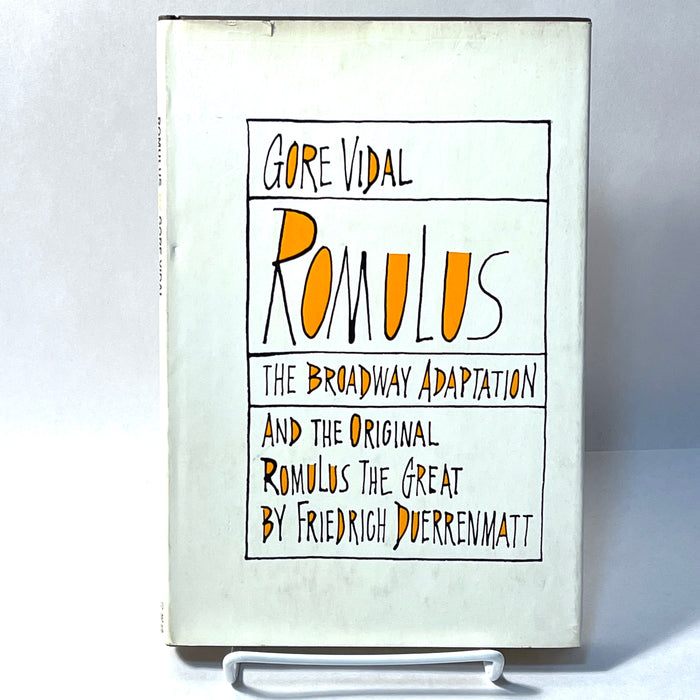 GORE VIDAL
ROMULUS
THE BROADWAY ADAPTATION
AND THE ORIGINAL
ROMULUS THE GREAT
BY FRIEDRICH DUERRENMATT
ROMULUS
GORE VIDAL